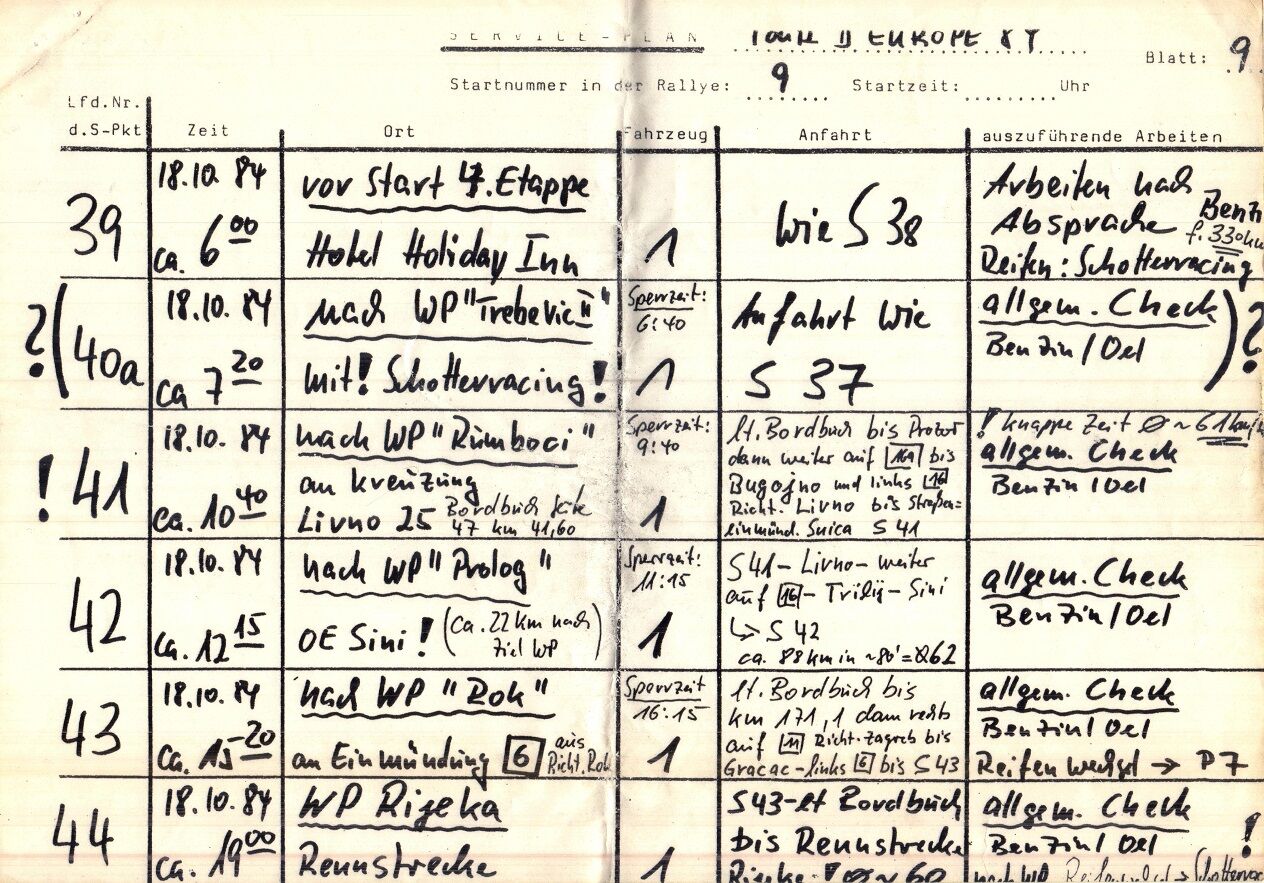 SERVICE-PLAN TOUR D EUROPE 84
Blatt: 9
Startnummer in der Rallye: 9 Startzeit: Uhr
Lfd.Nr.
d.S-Pkt Zeit Ort Fahrzeug Anfahrt auszuführende Arbeiten
39
18.10. 84
ca. 6 00
vor Start 4. Etappe
Hotel Holiday Inn
1
Wie S 38
Arbeiten nach
Absprache Benzin
f. 330km
Reifen: Schotterracing
? ( 40a
18.10. 84
ca 7 20
nach WP "Trebevic II"
mit! Schotterracing!
Sperrzeit:
6:40
1
Anfahrt wie
S 37
allgem. Check ) ?
Benzin / Oel
! 41
18.10. 84
ca. 10 40
nach WP "Rumboci"
an Kreuzung
Livno 25 Bordbuch Seite
47 km 41,60
Sperrzeit:
9:40
1
lt. Bordbuch bis Prozor
dann weiter auf bis
Bugojno und links 16
Richt. Livno bis Straßen=
einmünd. Suica S 41
! knappe Zeit Ø ~ 61 km/h
allgem. Check
Benzin / Oel
42
18.10. 84
ca. 12 15
nach WP "Prolog"
OE Sini! (ca. 22 km nach
Ziel WP)
Sperrzeit:
11:15
1
S 41 - Livno - weiter
auf 16 - Trilij - Sini
↳ S 42
ca. 88 km in ~80' = Ø62
allgem. Check
Benzin / Oel
43
18.10. 84
ca. 15 20
nach WP "Rok"
an Einmündung 6 aus
Richt. Rok
Sperrzeit
16:15
1
lt. Bordbuch bis
km 171,1 dann rechts
auf 11 Richt. Zagreb bis
Gracac - links 6 bis S 43
allgem. Check
Benzin / Oel
Reifenwechsel → P7
44
18.10. 84
ca. 19 00
WP Rijeka
Rennstrecke
1
S 43 - lt Bordbuch
bis Rennstrecke
Rijeka ! Ø ~ 60
allgem. Check
Benzin / Oel !
nach WP Reifenwechsel → Schotterrac